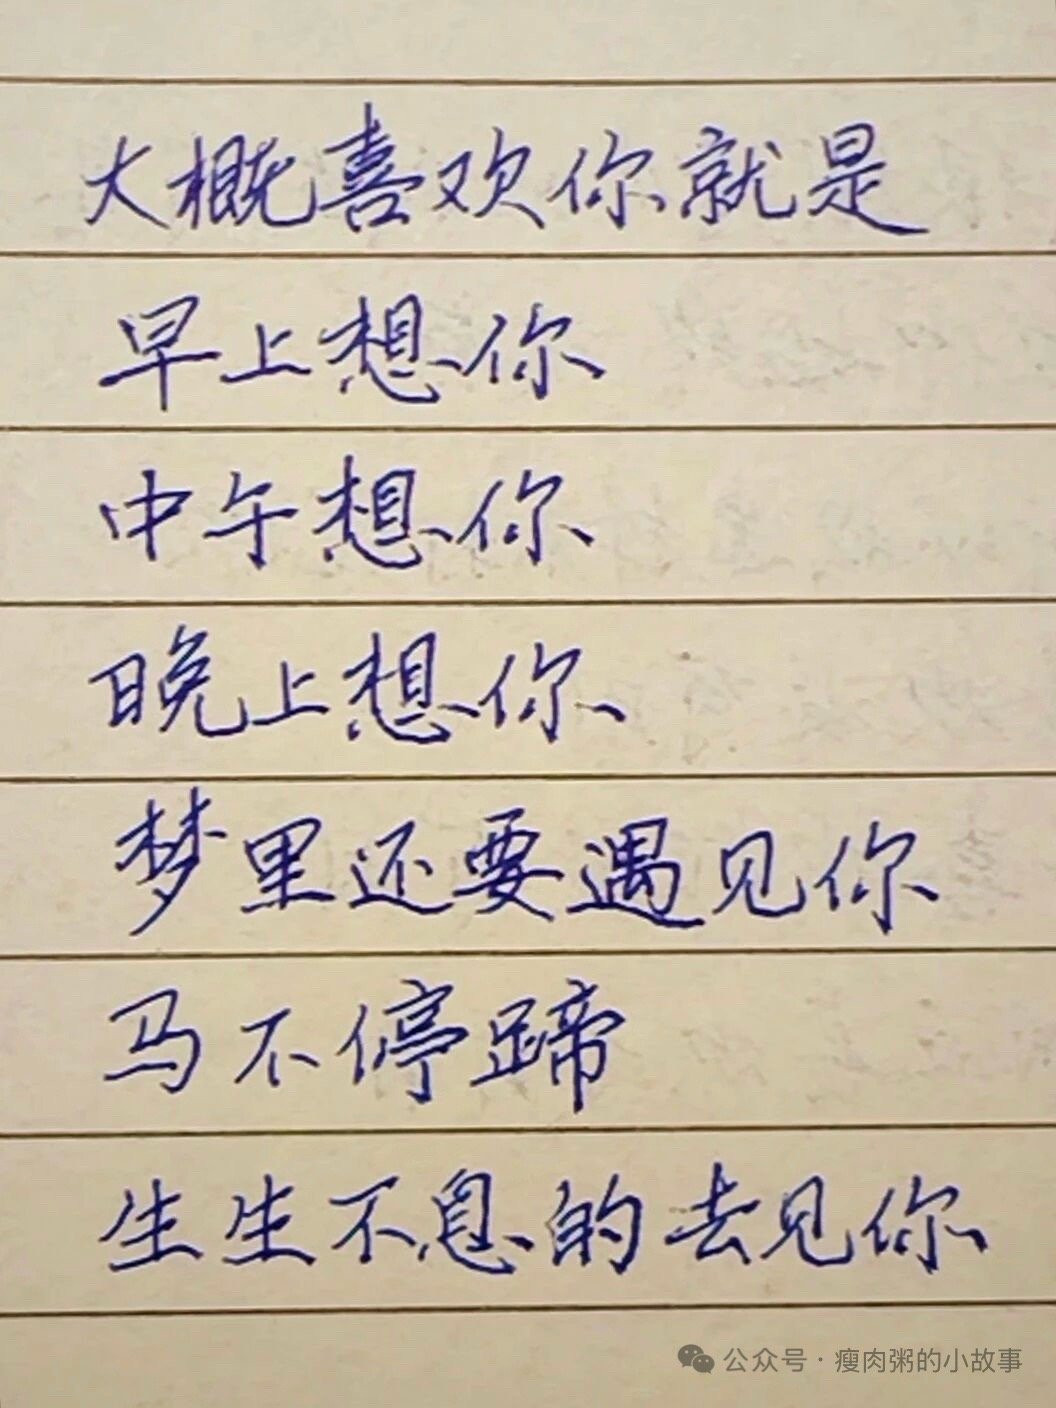 大概喜欢你就是
早上想你
中午想你
晚上想你
梦里还要遇见你
马不停蹄
生生不息的去见你
公众号·瘦肉粥的小故事